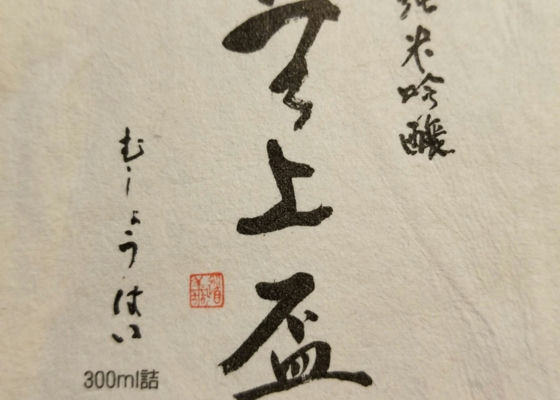 純米吟醸
無上盃
むじょうはい
300ml詰